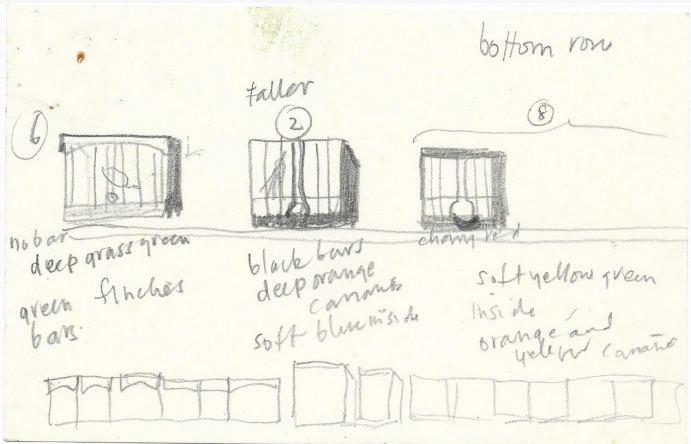 bottom row
taller
6
2
8
no bar
deep grass green
green finches
bars
black bars
deep orange
canaries
soft blue inside
cherry red
soft yellow green
inside
orange and
yellow canaries